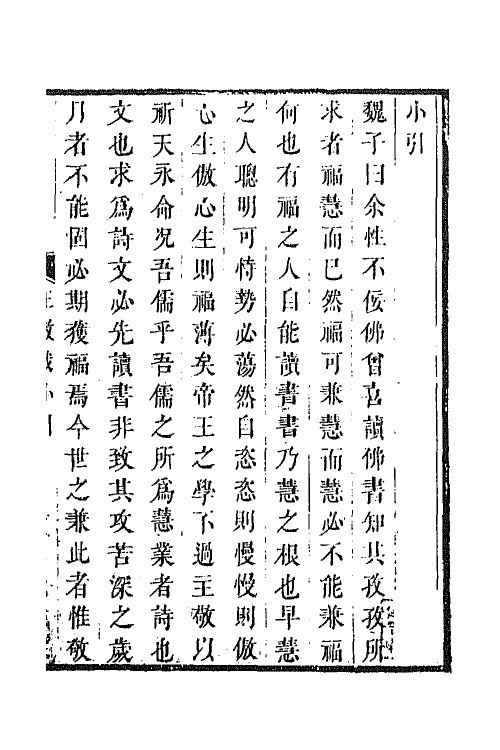 小引
魏子曰余性不佞佛曾喜讀佛書知其孜孜所
求者福慧而已然福可兼慧而慧必不能兼福
何也有福之人自能讀書書乃慧之根也早慧
之人聰明可恃勢必蕩然自恣恣則慢慢則傲
心生傲心生則福薄矣帝王之學不過主敬以
祈天永命况吾儒乎吾儒之所爲慧業者詩也
文也求爲詩文必先讀書非致其攻苦深之歲
月者不能固必期獲福焉今世之兼此者惟敬
小引